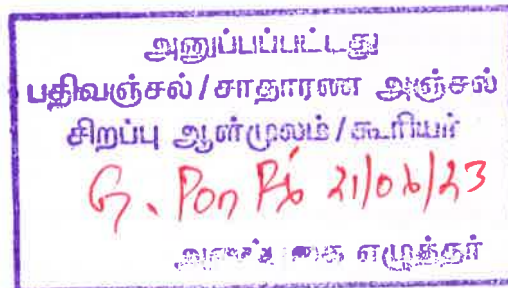 அனுப்பப்பட்டது
பதிவஞ்சல் / சாதாரண அஞ்சல்
சிறப்பு ஆள்மூலம் / கூரியர்
G. Pon 21/06/23
எழுத்தர்